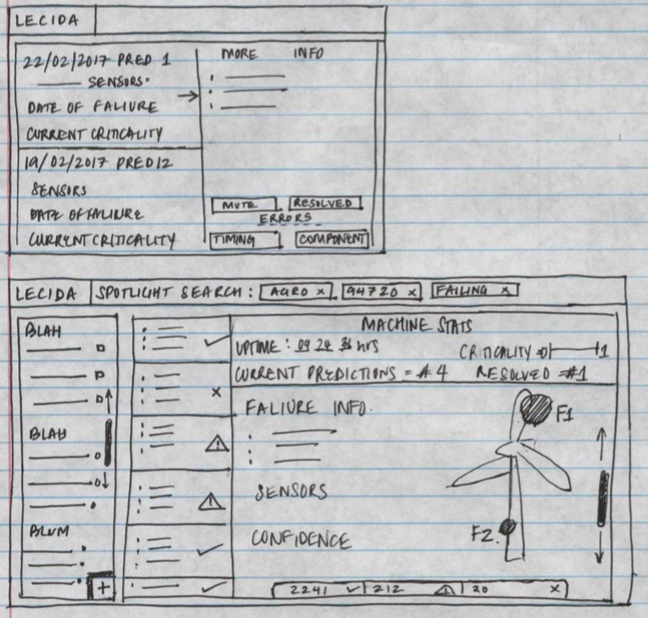 LECIDA
22/02/2017 PRED 1
SENSORS.
DATE OF FALIURE
CURRENT CRITICALITY
19/02/2017 PRED12
SENSORS
DATE OF FALIURE
CURRENT CRITICALITY
MORE INFO
MUTE RESOLVED
ERRORS
TIMING COMPONENT
LECIDA SPOTLIGHT SEARCH: AGRO x 94720 x FAILING x
BLAH
BLAH
BLUM
+
MACHINE STATS
UPTIME: 09 24 hrs
CRITICALITY 1
CURRENT PREDICTIONS = #4 RESOLVED #1
FALIURE INFO.
F1
SENSORS
CONFIDENCE
F2.
2241 212 20 x